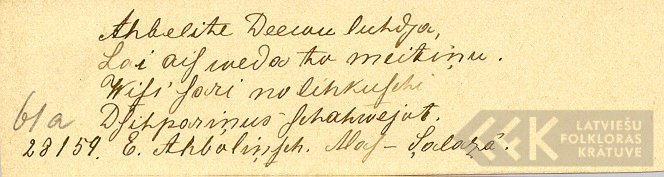 Ahbelite Deewu luhdza,
Lai aisweda to meitiņu.
Wisi sari nolihkuschi
Dsihpariņus schahwejot.
61a
23159. E. Ahboliņsch. Mas-Salazâ.
LATVIEŠU
FOLKLORAS
KRĀTUVE